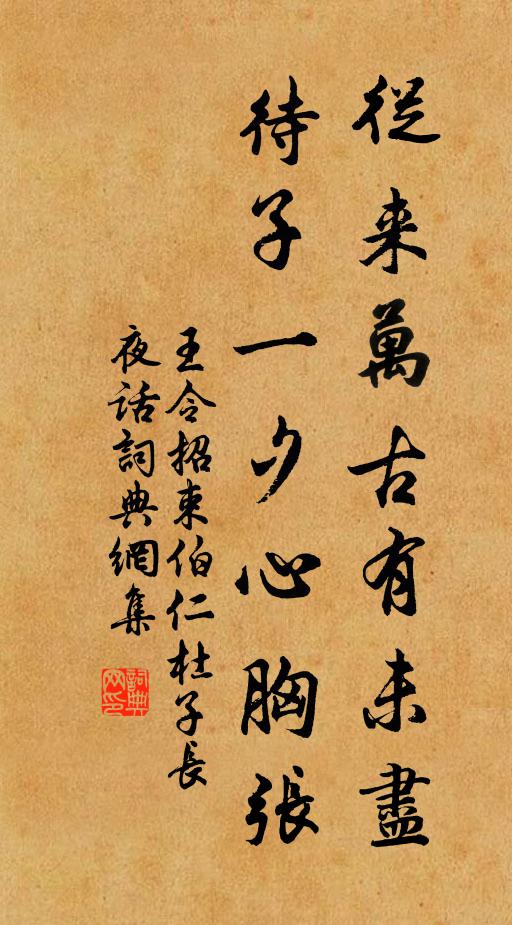 從来萬古有未盡
待子一夕心胸張
王令招束伯仁杜子長
夜話詞典網集
詞典网印